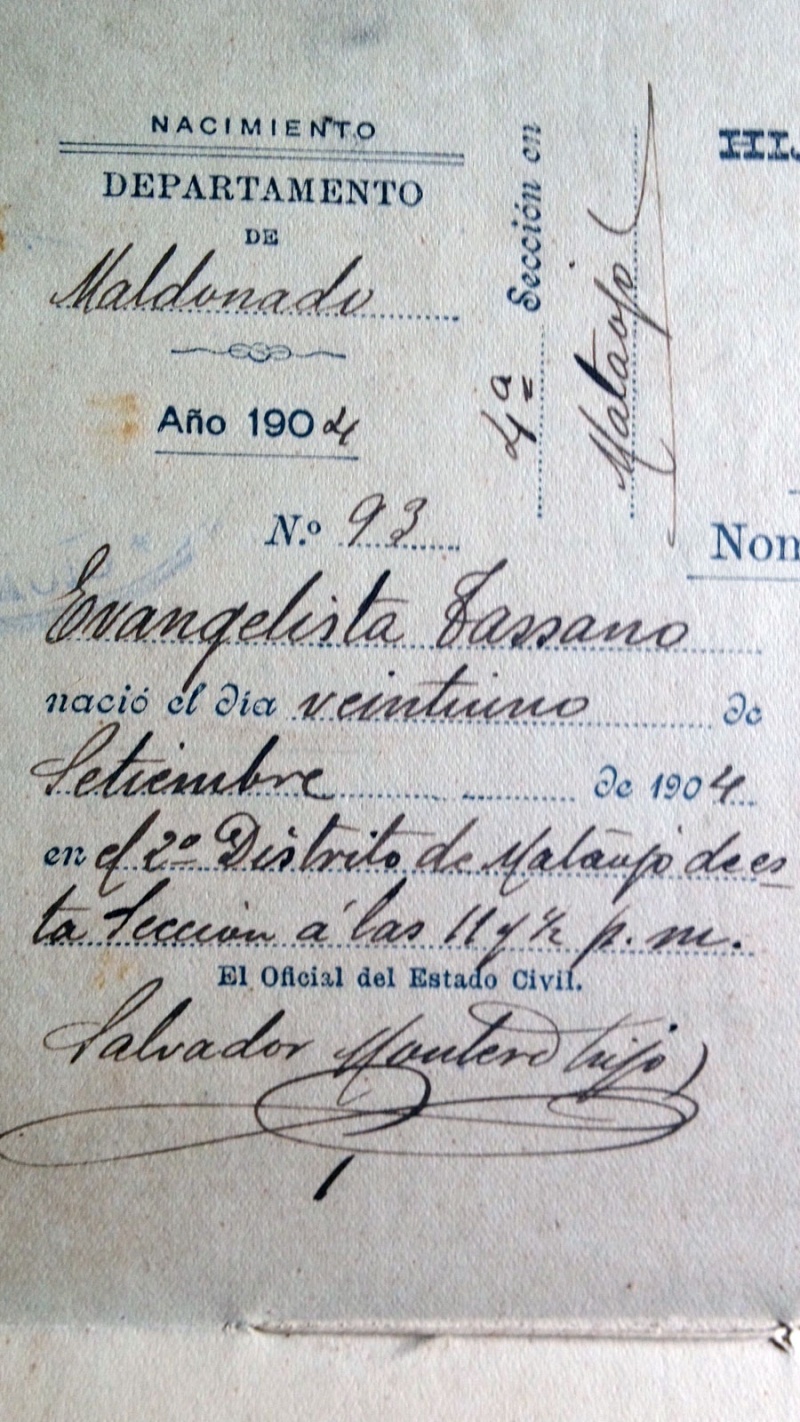 NACIMIENTO
DEPARTAMENTO
DE
Maldonado
Año 1904
4ª Sección en
Mataojo
N.º 93
Evangelista Tassano
nació el día veintiuno de
Setiembre de 1904
en el 2º Distrito de Mataojo de es-
ta Sección á las 11 y ½ p. m.
El Oficial del Estado Civil.
Salvador Montero hijo
HIJ
Nom